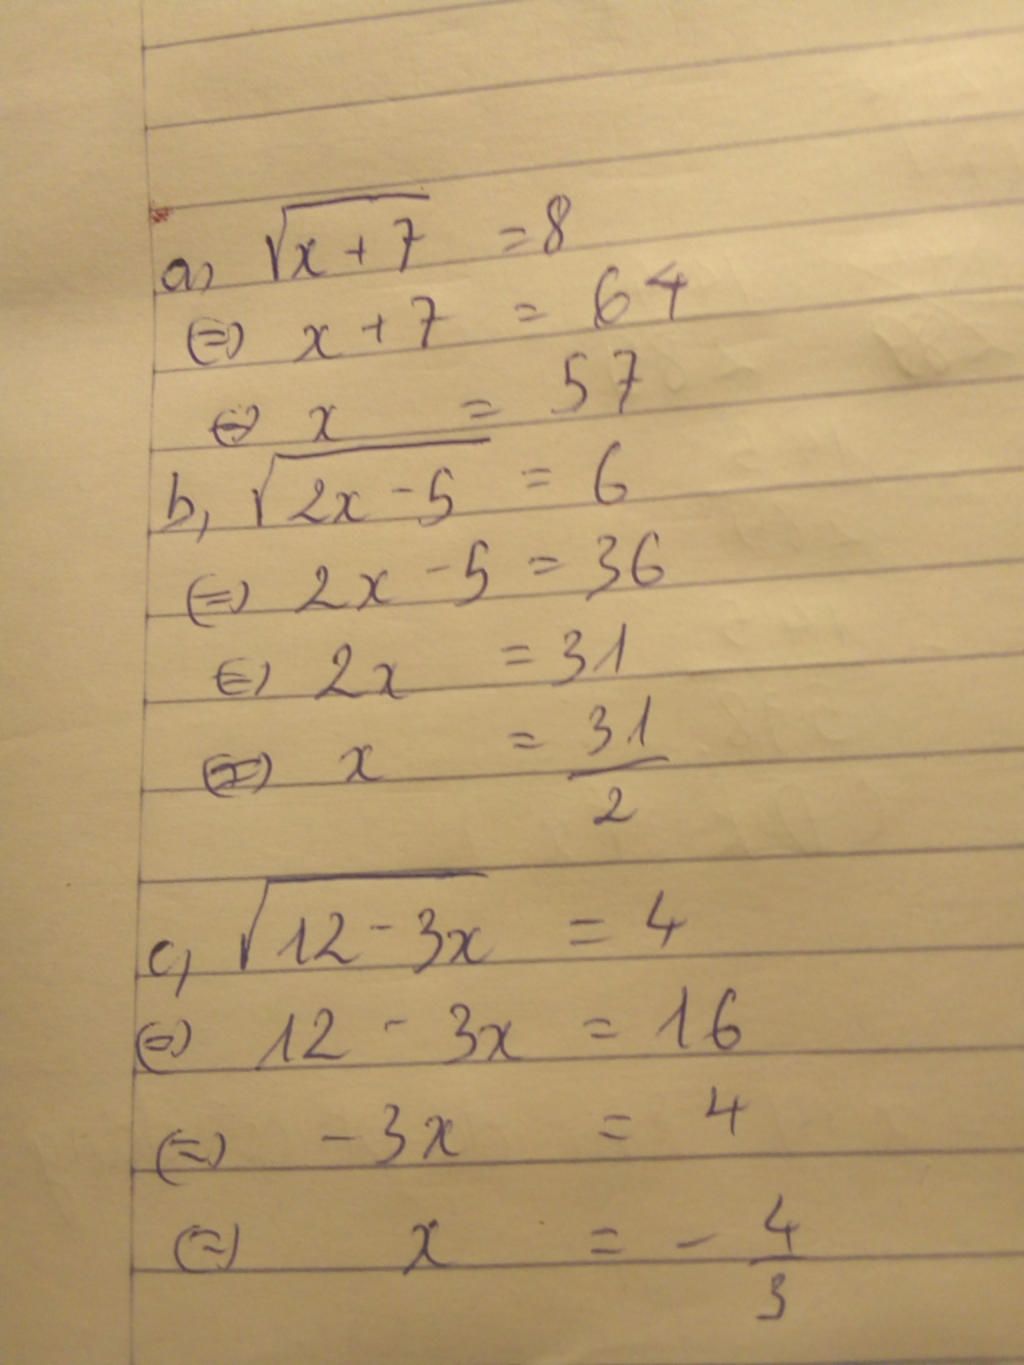 a, √x + 7 = 8
⇔ x + 7 = 64
⇔ x = 57
b, √2x - 5 = 6
⇔ 2x - 5 = 36
⇔ 2x = 31
⇔ x = 31/2
c, √12 - 3x = 4
⇔ 12 - 3x = 16
⇔ - 3x = 4
⇔ x = - 4/3